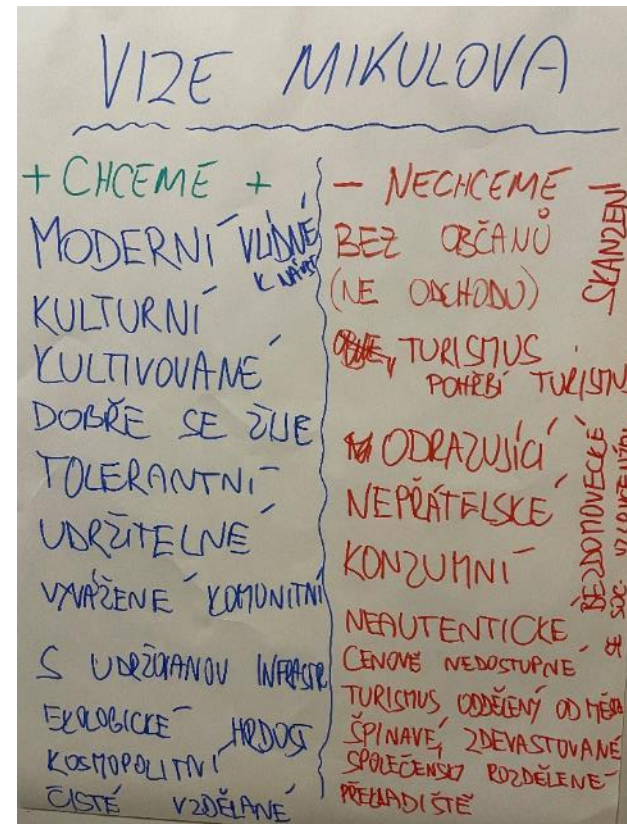 VIZE MIKULOVA
+ CHCEME +
MODERNÍ VLÍDNÉ
KULTURNÍ
KULTIVOVANÉ
DOBŘE SE ŽIJE
TOLERANTNÍ
UDRŽITELNÉ
VYVÁŽENÉ KOMUNITNÍ
S UDRŽOVANOU INFRASTR
EKOLOGICKÉ HRDOST
KOSMOPOLITNÍ
ČISTÉ VZDĚLANÉ
- NECHCEME
BEZ OBČANŮ
(NE ODCHODU)
TURISMUS
POHŘBÍ TURISMU
ODRAZUJÍCÍ
NEPŘÁTELSKÉ
KONZUMNÍ
NEAUTENTICKÉ
CENOVĚ NEDOSTUPNÉ
TURISMUS ODDĚLENÝ OD MĚSTA
ŠPINAVÉ, ZDEVASTOVANÉ
SPOLEČENSKY ROZDĚLENÉ
PŘEKLADIŠTĚ
SKANZEN
BEZDOMOVECKÉ
SE SOC.